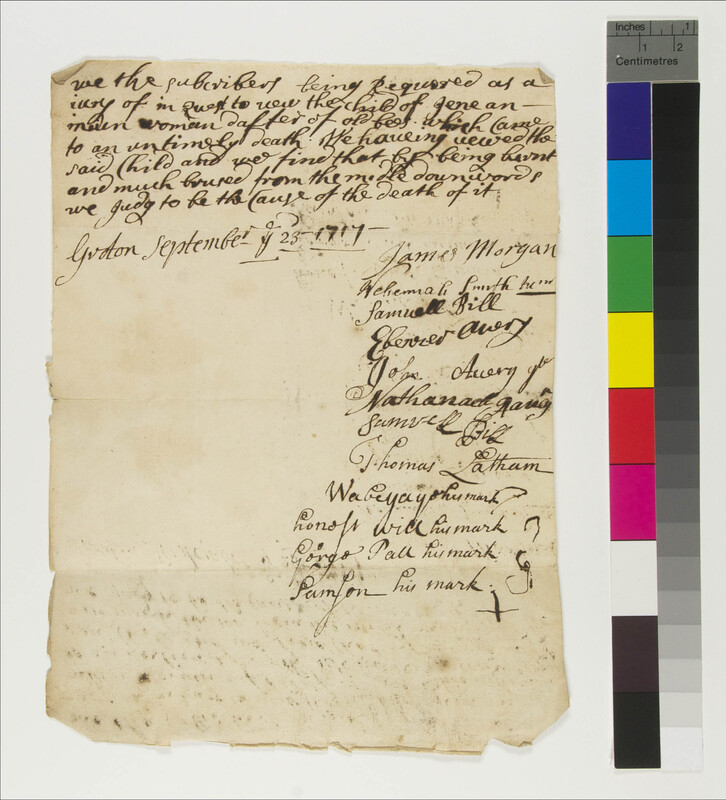 we the subcribers being Requered as a
iury of in quest to vew the Child of Jene an
indian woman dafter of old bee which Came
to an untimely death We haveing vewed the
said Child and we find that by being burnt
and much brused from the midle downwords
we Judg to be the Cause of the death of it
Groton September ye 23d 1717
James Morgan
Nehemiah Smith Jun
Samuell Bill
Ebenezer Avery
John Avery
Nathanael
Samuell Bill
Thomas Latham
Wabeyayo his mark
honest will his mark
Gorge Pall his mark
Samson his mark
Inches 1
1 2
Centimetres